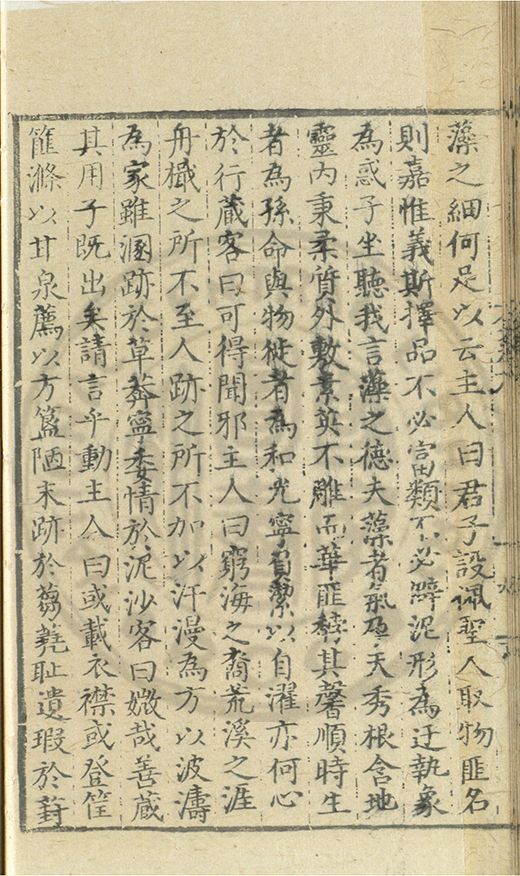 藻之細何足以云主人曰君子設佩聖人取物匪名
則嘉惟義斯擇品不必富類不必辟泥形為迂執象
為惑子坐聽我言藻之德夫藻者氣孕天秀根含地
靈內秉柔質外敷素英不雕而華匪𣜩其馨順時生
者為孫命與物徙者為和光寧自潔以自濯亦何心
於行蔵客曰可得聞邪主人曰窮海之裔荒溪之涯
舟檝之所不至人跡之所不加以汗漫為方以波濤
為家雖溷跡於草莽寧委情於泥沙客曰媺哉善蔵
其用子既出矣請言乎動主人曰或載衣襟或登筐
筵滌以甘泉薦以方簋陋末跡於芻蕘耻遺瑕於葑